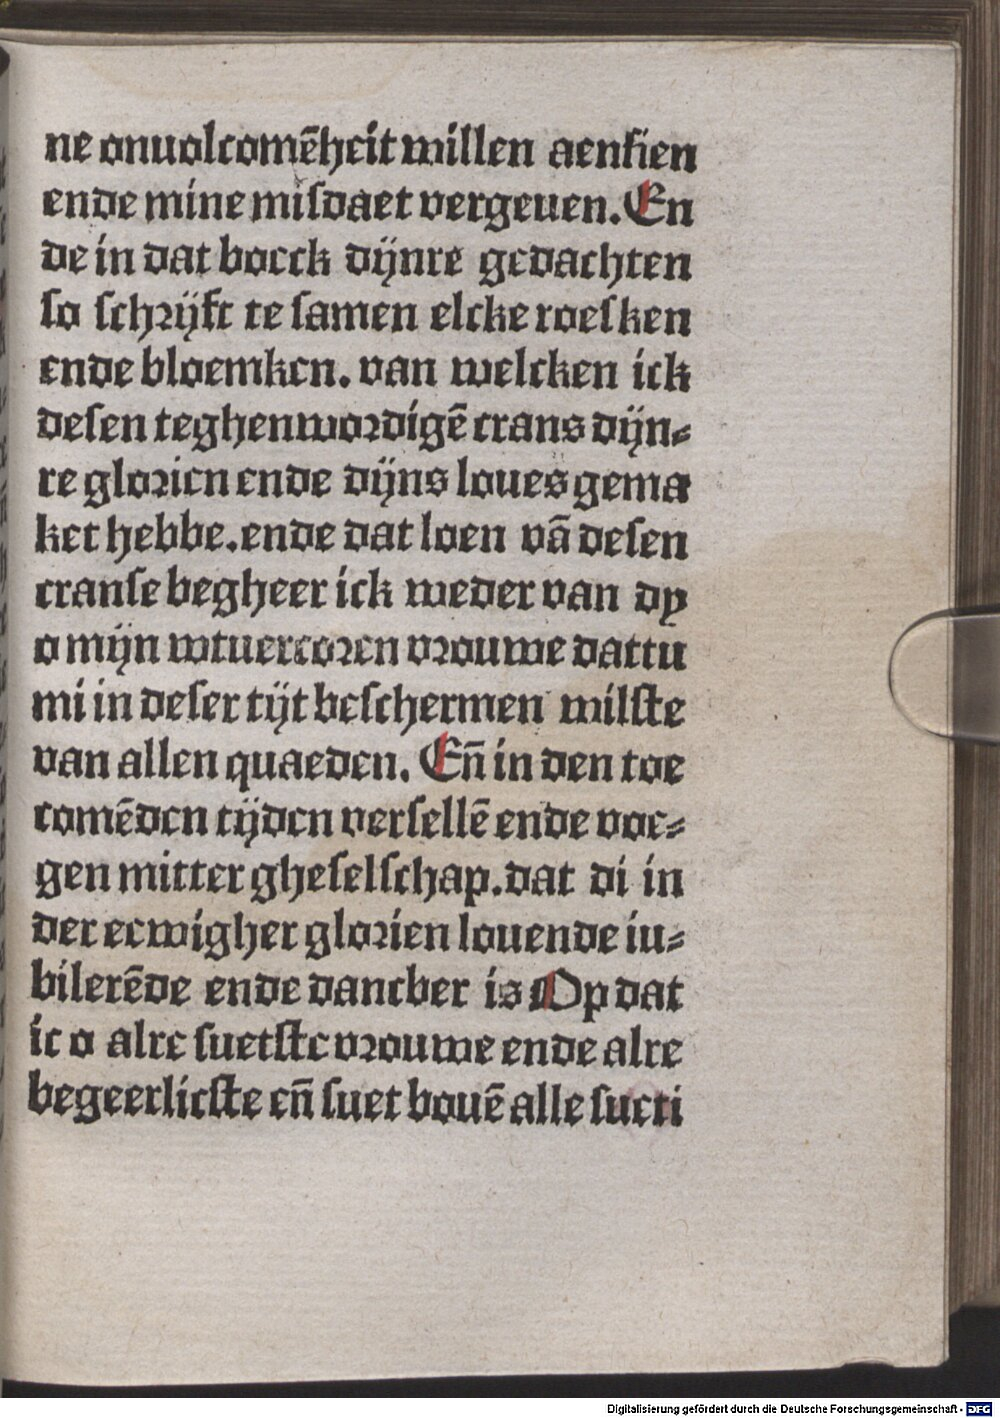 ne onuolcomēheit willen aensien
ende mine misdaet vergeuen. En
de in dat boeck dijnre gedachten
so schrijft te samen elcke roesken
ende bloemken. van welcken ick
desen teghenwordigē crans dijn⸗
re glorien ende dijns loues gema
ket hebbe. ende dat loen vā desen
cranse begheer ick weder van dy
o mijn wtuercoren vrouwe dattu
mi in deser tijt beschermen wilste
van allen quaeden. Eñ in den toe
comēden tijden versellē ende voe⸗
gen mitter gheselschap. dat di in
der eewigher glorien louende iu⸗
bilerēde ende dancber is Op dat
ic o alre suetste vrouwe ende alre
begeerlicste eñ suet bouē alle sueti
Digitalisierung gefördert durch die Deutsche Forschungsgemeinschaft - DFG